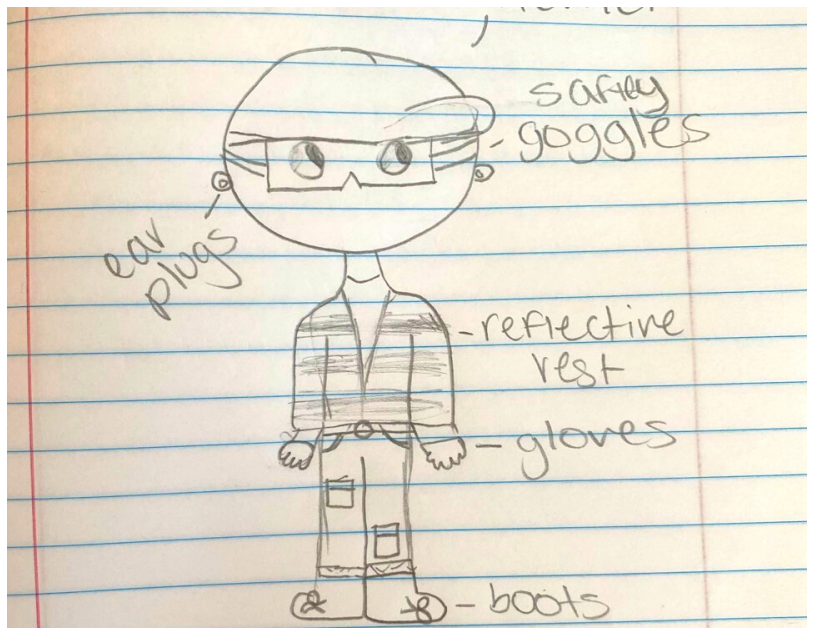 saftey
goggles
ear
plugs
reflective
vest
gloves
boots